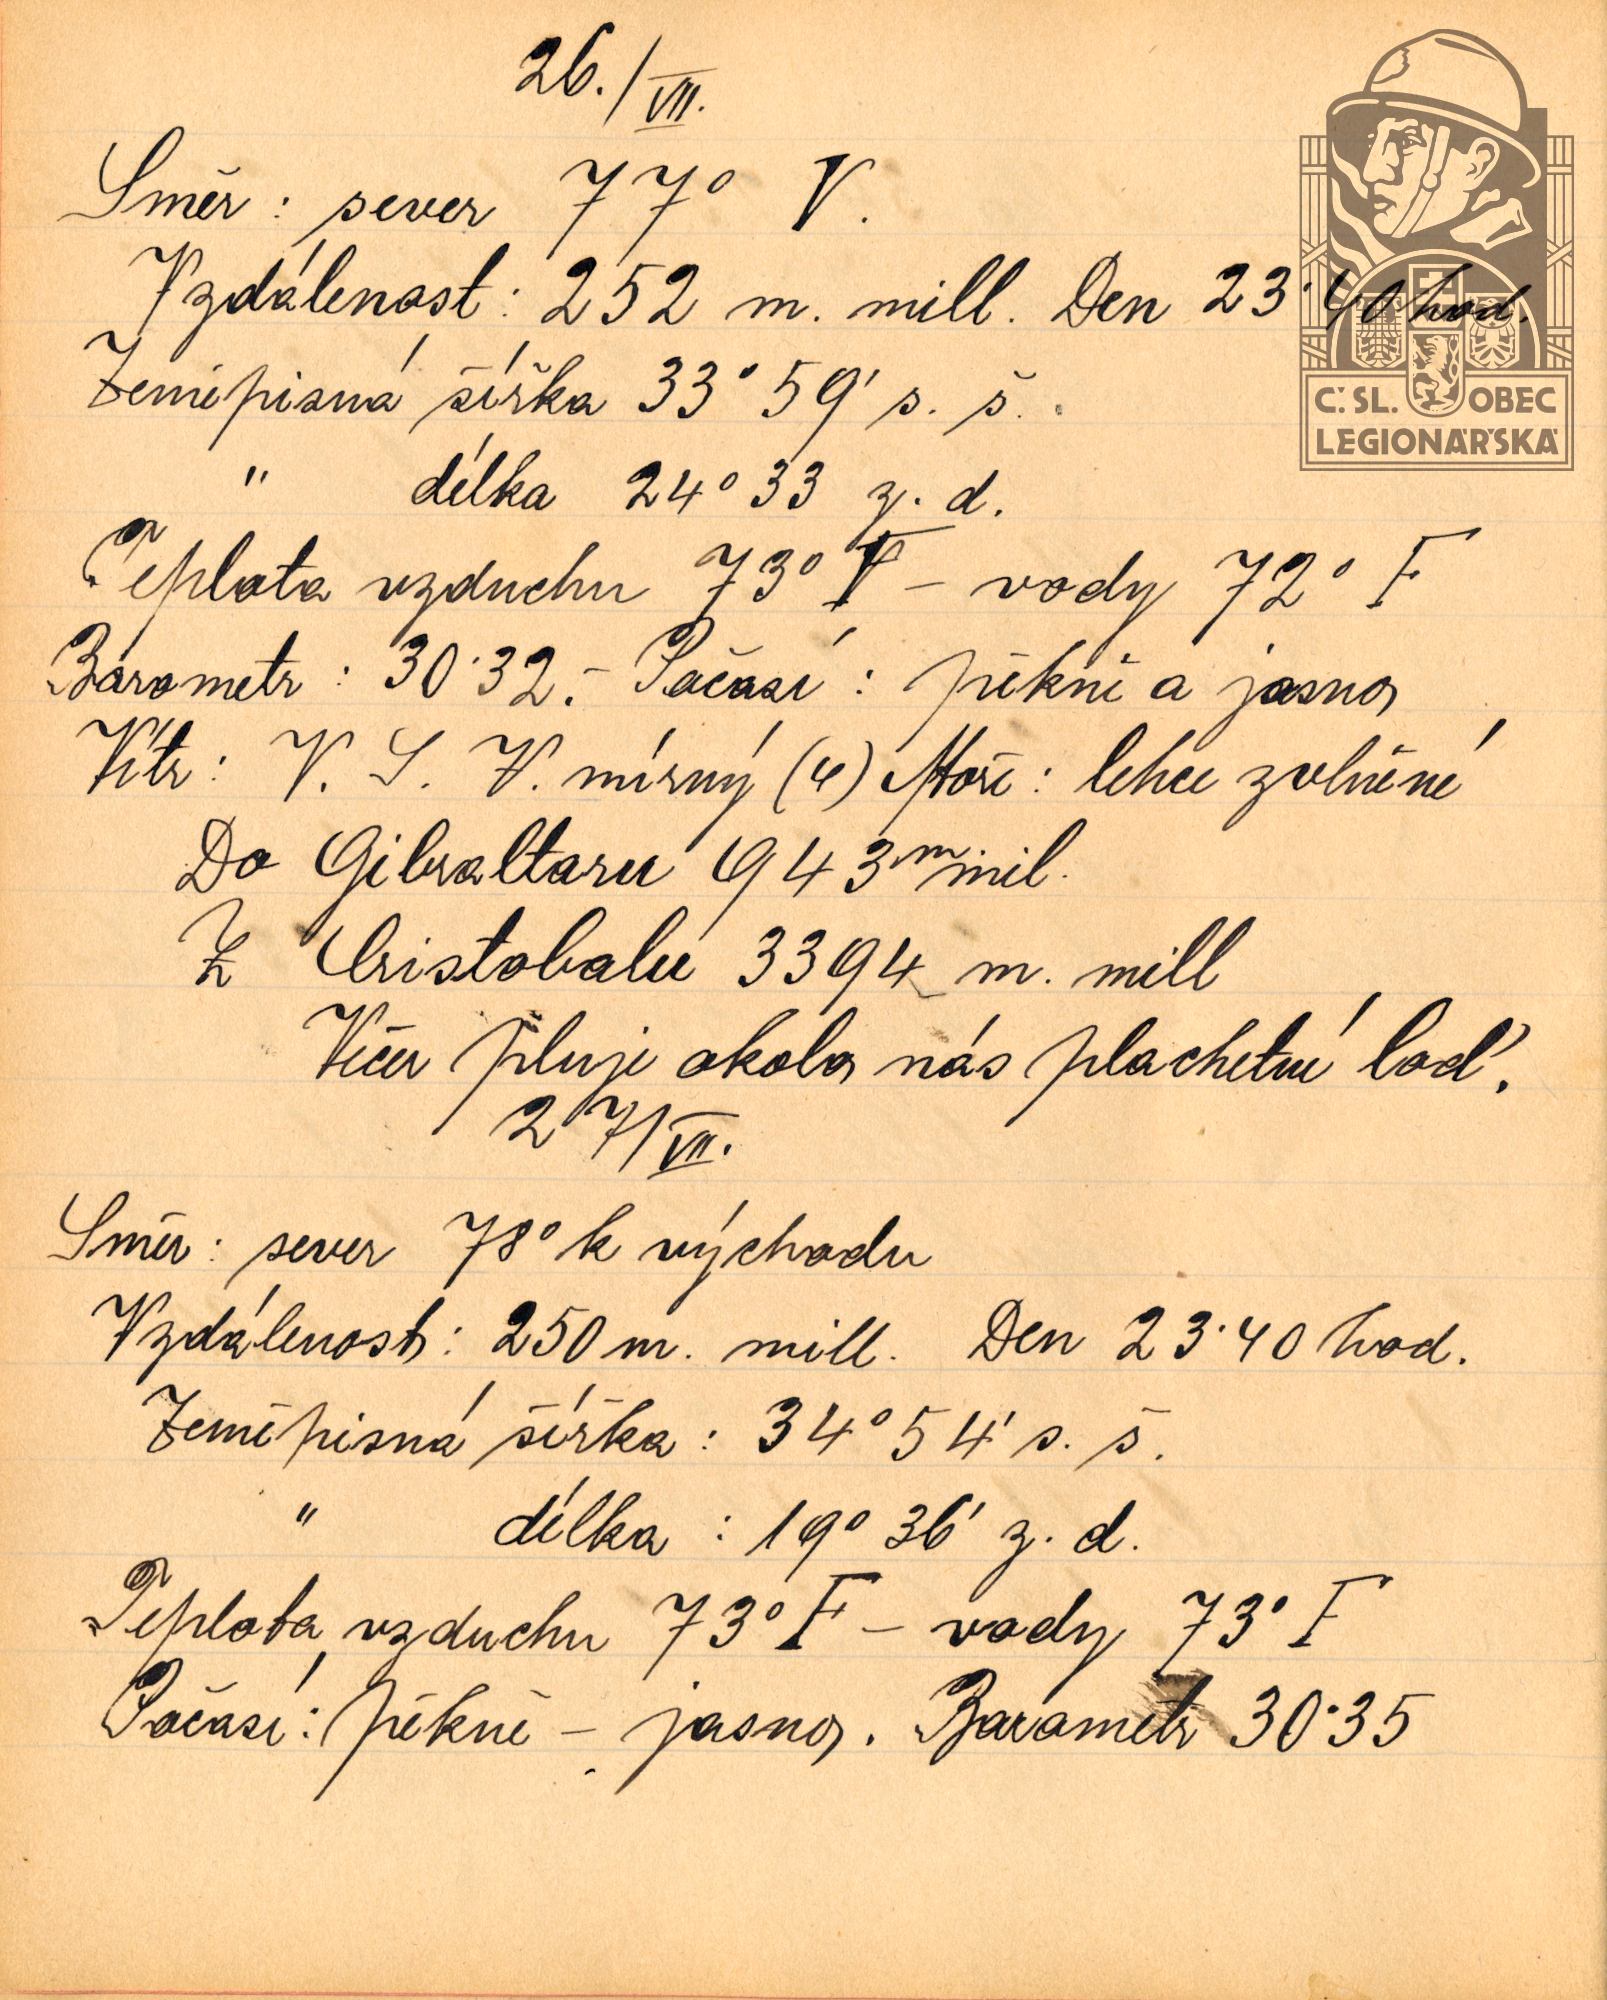 26./VII.
Směr: sever 77° V.
Vzdálenost: 252 m. mill. Den 23·40 hod.
Zeměpisná šířka 33° 59' s. š.
" délka 24° 33 z. d.
Teplota vzduchu 73° F – vody 72° F
Barometr: 30·32.– Počasí: pěkně a jasno
Vítr: V. S. V. mírný (4) Moře: lehce zvlněné
Do Gibraltaru 943 m mil.
Z Cristobalu 3394 m. mill
Večer pluje okolo nás plachetní loď.
27/VII.
Směr: sever 78° k východu
Vzdálenost: 250 m. mill. Den 23·40 hod.
Zeměpisná šířka: 34° 54' s. š.
" délka: 19° 36' z. d.
Teplota vzduchu 73° F – vody 73° F
Počasí: pěkně – jasno. Barometr 30·35
Č. SL. OBEC
LEGIONÁŘSKÁ